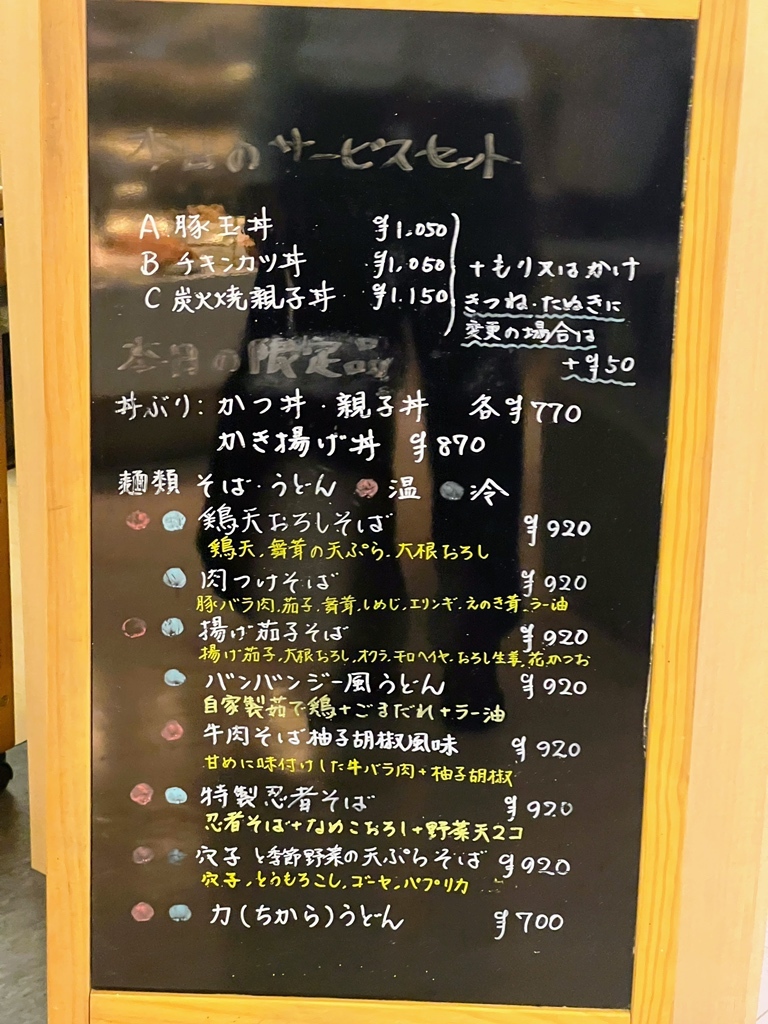 本日のサービスセット
A 豚玉丼 ¥1,050
B チキンカツ丼 ¥1,050
C 炭火焼親子丼 ¥1,150
+もり又はかけ
きつね・たぬきに
変更の場合は
+¥50
本日の限定品
丼ぶり: かつ丼・親子丼 各¥770
かき揚げ丼 ¥870
麺類 そば・うどん 温 冷
鶏天おろしそば ¥920
鶏天、舞茸の天ぷら、大根おろし
肉つけそば ¥920
豚バラ肉、茄子、舞茸、しめじ、エリンギ、えのき茸、ラー油
揚げ茄子そば ¥920
揚げ茄子、大根おろし、オクラ、モロヘイヤ、おろし生姜、花かつお
バンバンジー風うどん ¥920
自家製茹で鶏+ごまだれ+ラー油
牛肉そば柚子胡椒風味 ¥920
甘めに味付けした牛バラ肉+柚子胡椒
特製忍者そば ¥920
忍者そば+なめこおろし+野菜天2コ
穴子と季節野菜の天ぷらそば ¥920
穴子、とうもろこし、ゴーヤ、パプリカ
力(ちから)うどん ¥700